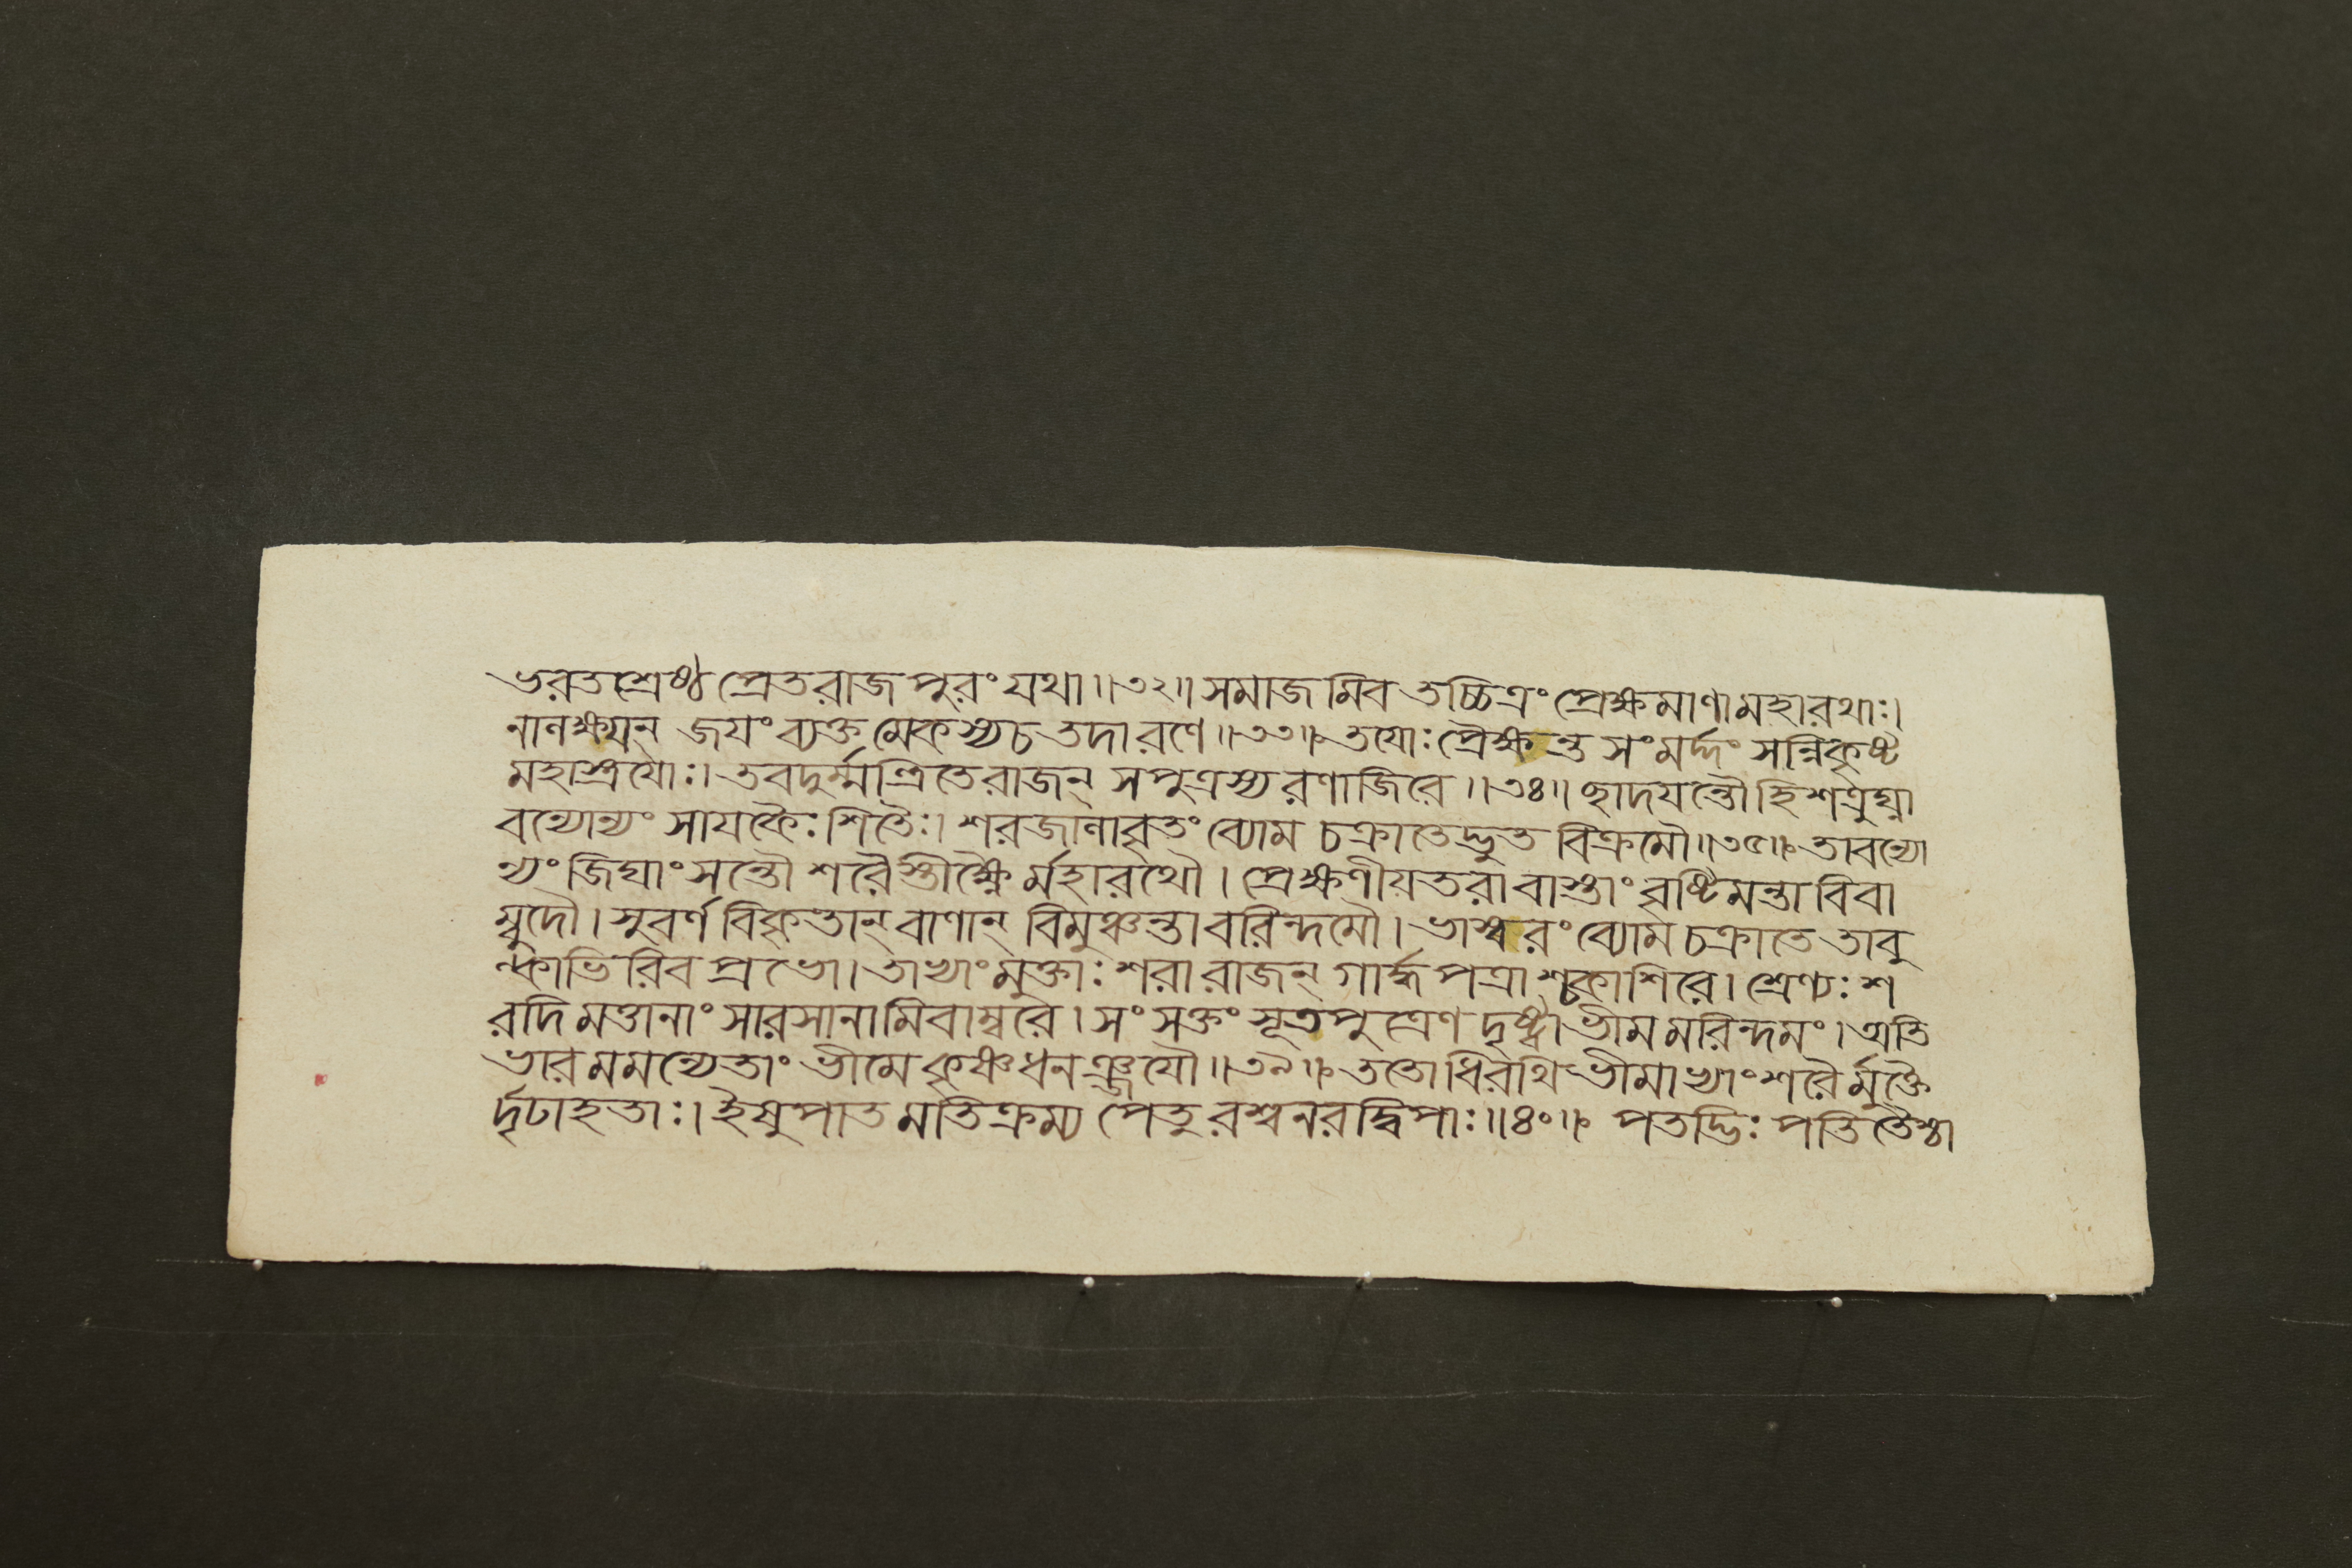 ভরতশ্রেষ্ঠ প্রেতরাজপুরং যথা॥৩২॥ সমাজমিব তচ্চিত্রং প্রেক্ষমাণামহারথাঃ।
নানক্ষযন্ জযং ব্যক্তমেকস্যচতদারণে॥৩৩॥ তযোঃ প্রৈক্ষন্ত সংমর্দ্দং সন্নিকৃষ্ট
মহাস্ত্রযোঃ। তবদুর্ম্মন্ত্রিতেরাজন্ সপুত্রস্য রণাজিরে॥৩৪॥ ছাদযন্তৌহিশত্রুঘ্না
বন্যোন্যং সাযকৈঃ শিতৈঃ। শরজানাবৃতং ব্যোম চক্রাতেদ্ভুত বিক্রমৌ॥৩৫॥ তাবন্যো
ন্যং জিঘাংসন্তৌ শরৈস্তীক্ষ্ণৈর্মহারথৌ। প্রেক্ষণীযতরাবাস্তাং বৃষ্টিমন্তাবিবা
ম্বুদৌ। সুবর্ণবিকৃতান্ বাণান্ বিমুঞ্চন্তাবরিন্দমৌ। ভাস্বরং ব্যোম চক্রাতে তাবু
ল্কাভিরিব প্রভো। তাভ্যাং মুক্তাঃ শরা রাজন্ গার্দ্ধপত্রাশ্চকাশিরে। শ্রেণ্যঃ শ
রদি মত্তানাং সারসানামিবাম্বরে। সংসক্তং সূতপুত্রেণ দৃষ্ট্বা ভীমমরিন্দমং। অতি
ভারমমন্যেতাং ভীমে কৃষ্ণধনঞ্জযৌ॥৩৯॥ ততোধিরথি ভীমাভ্যাং শরৈর্মুক্তৈ
র্দৃঢাহতাঃ। ইষুপাতমতিক্রম্য পেতুরশ্বনরদ্বিপাঃ॥৪০॥ পতদ্ভিঃ পতিতৈশ্চা